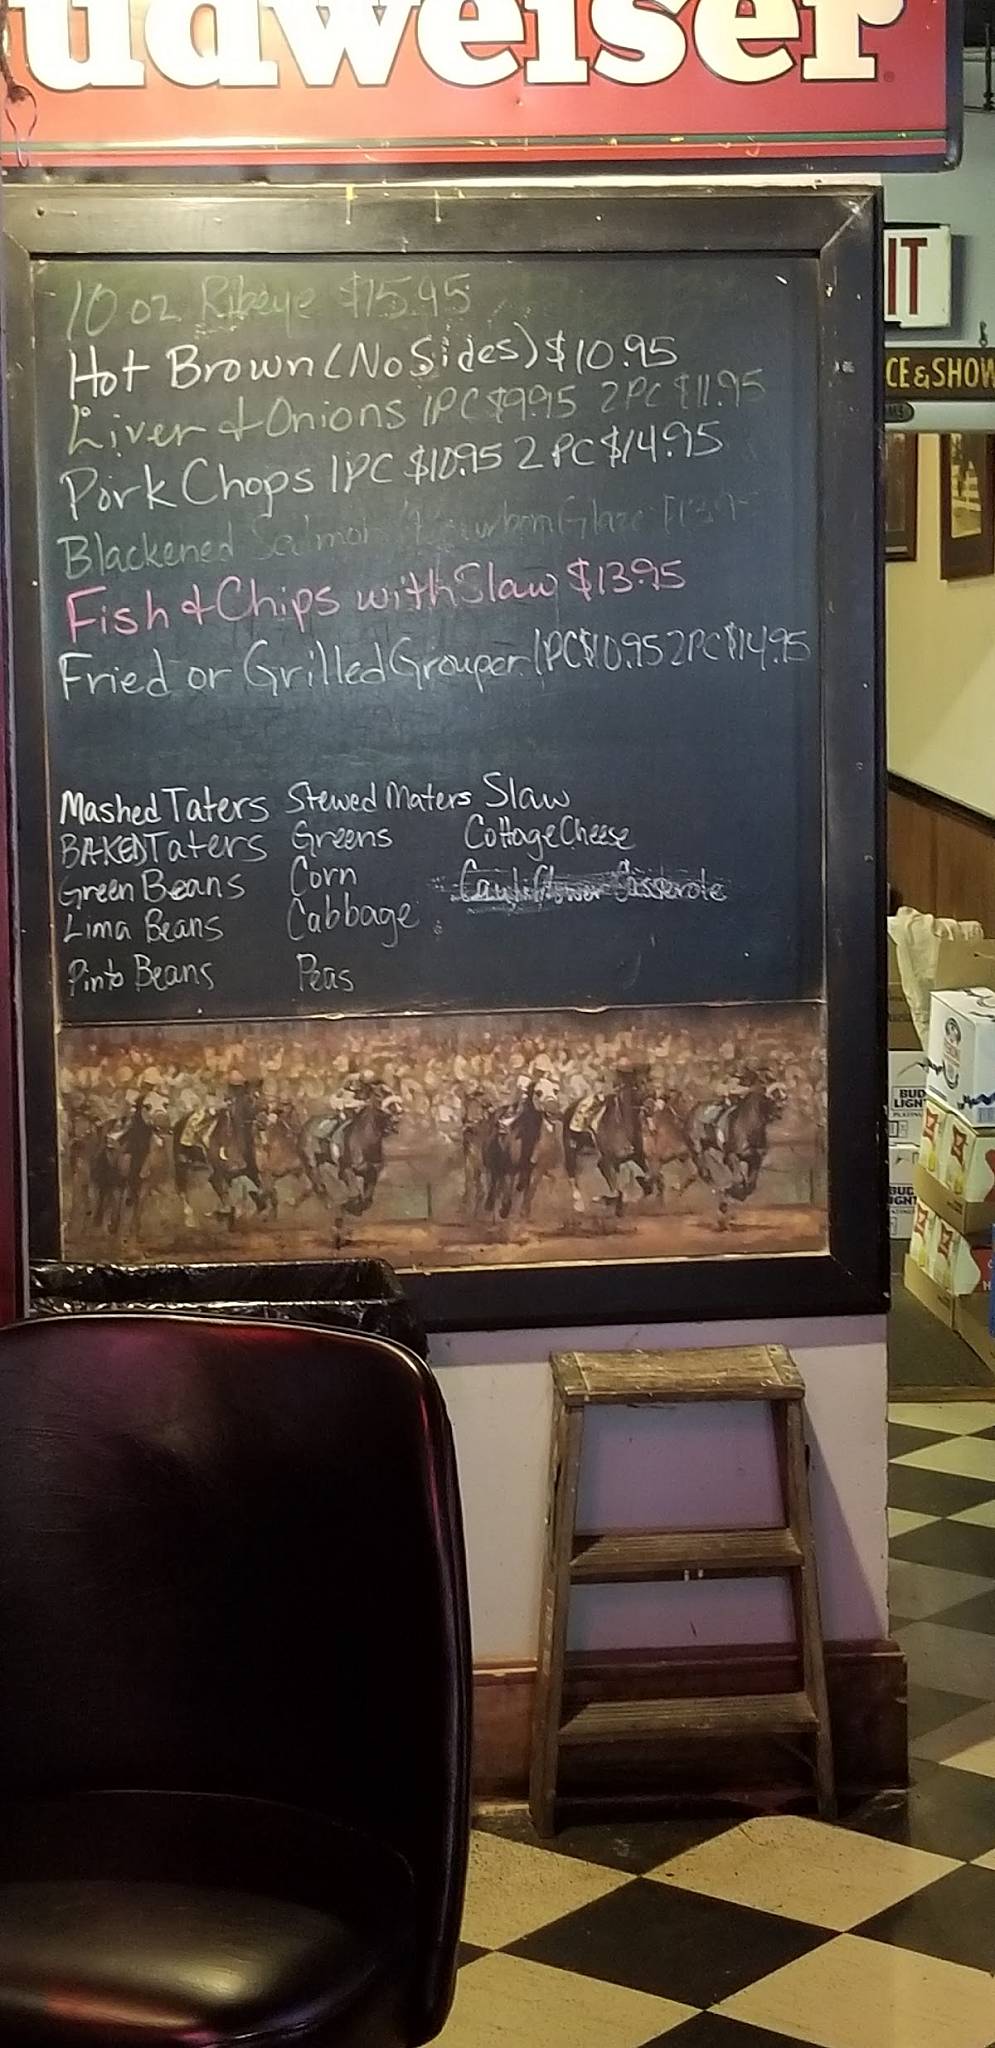 udweiser
10 oz Ribeye $15.95
Hot Brown (No Sides) $10.95
Liver & Onions 1PC $9.95 2PC $11.95
Pork Chops 1PC $10.95 2 PC $14.95
Blackened Salmon Bourbon Glaze
Fish & Chips with Slaw $13.95
Fried or Grilled Grouper 1PC $10.95 2PC $14.95
Mashed Taters Stewed Maters Slaw
BAKED Taters Greens Cottage Cheese
Green Beans Corn Cauliflower Casserole
Lima Beans Cabbage
Pinto Beans Peas
IT
CE & SHOW
BUD
LIGHT
BUD
LIGHT